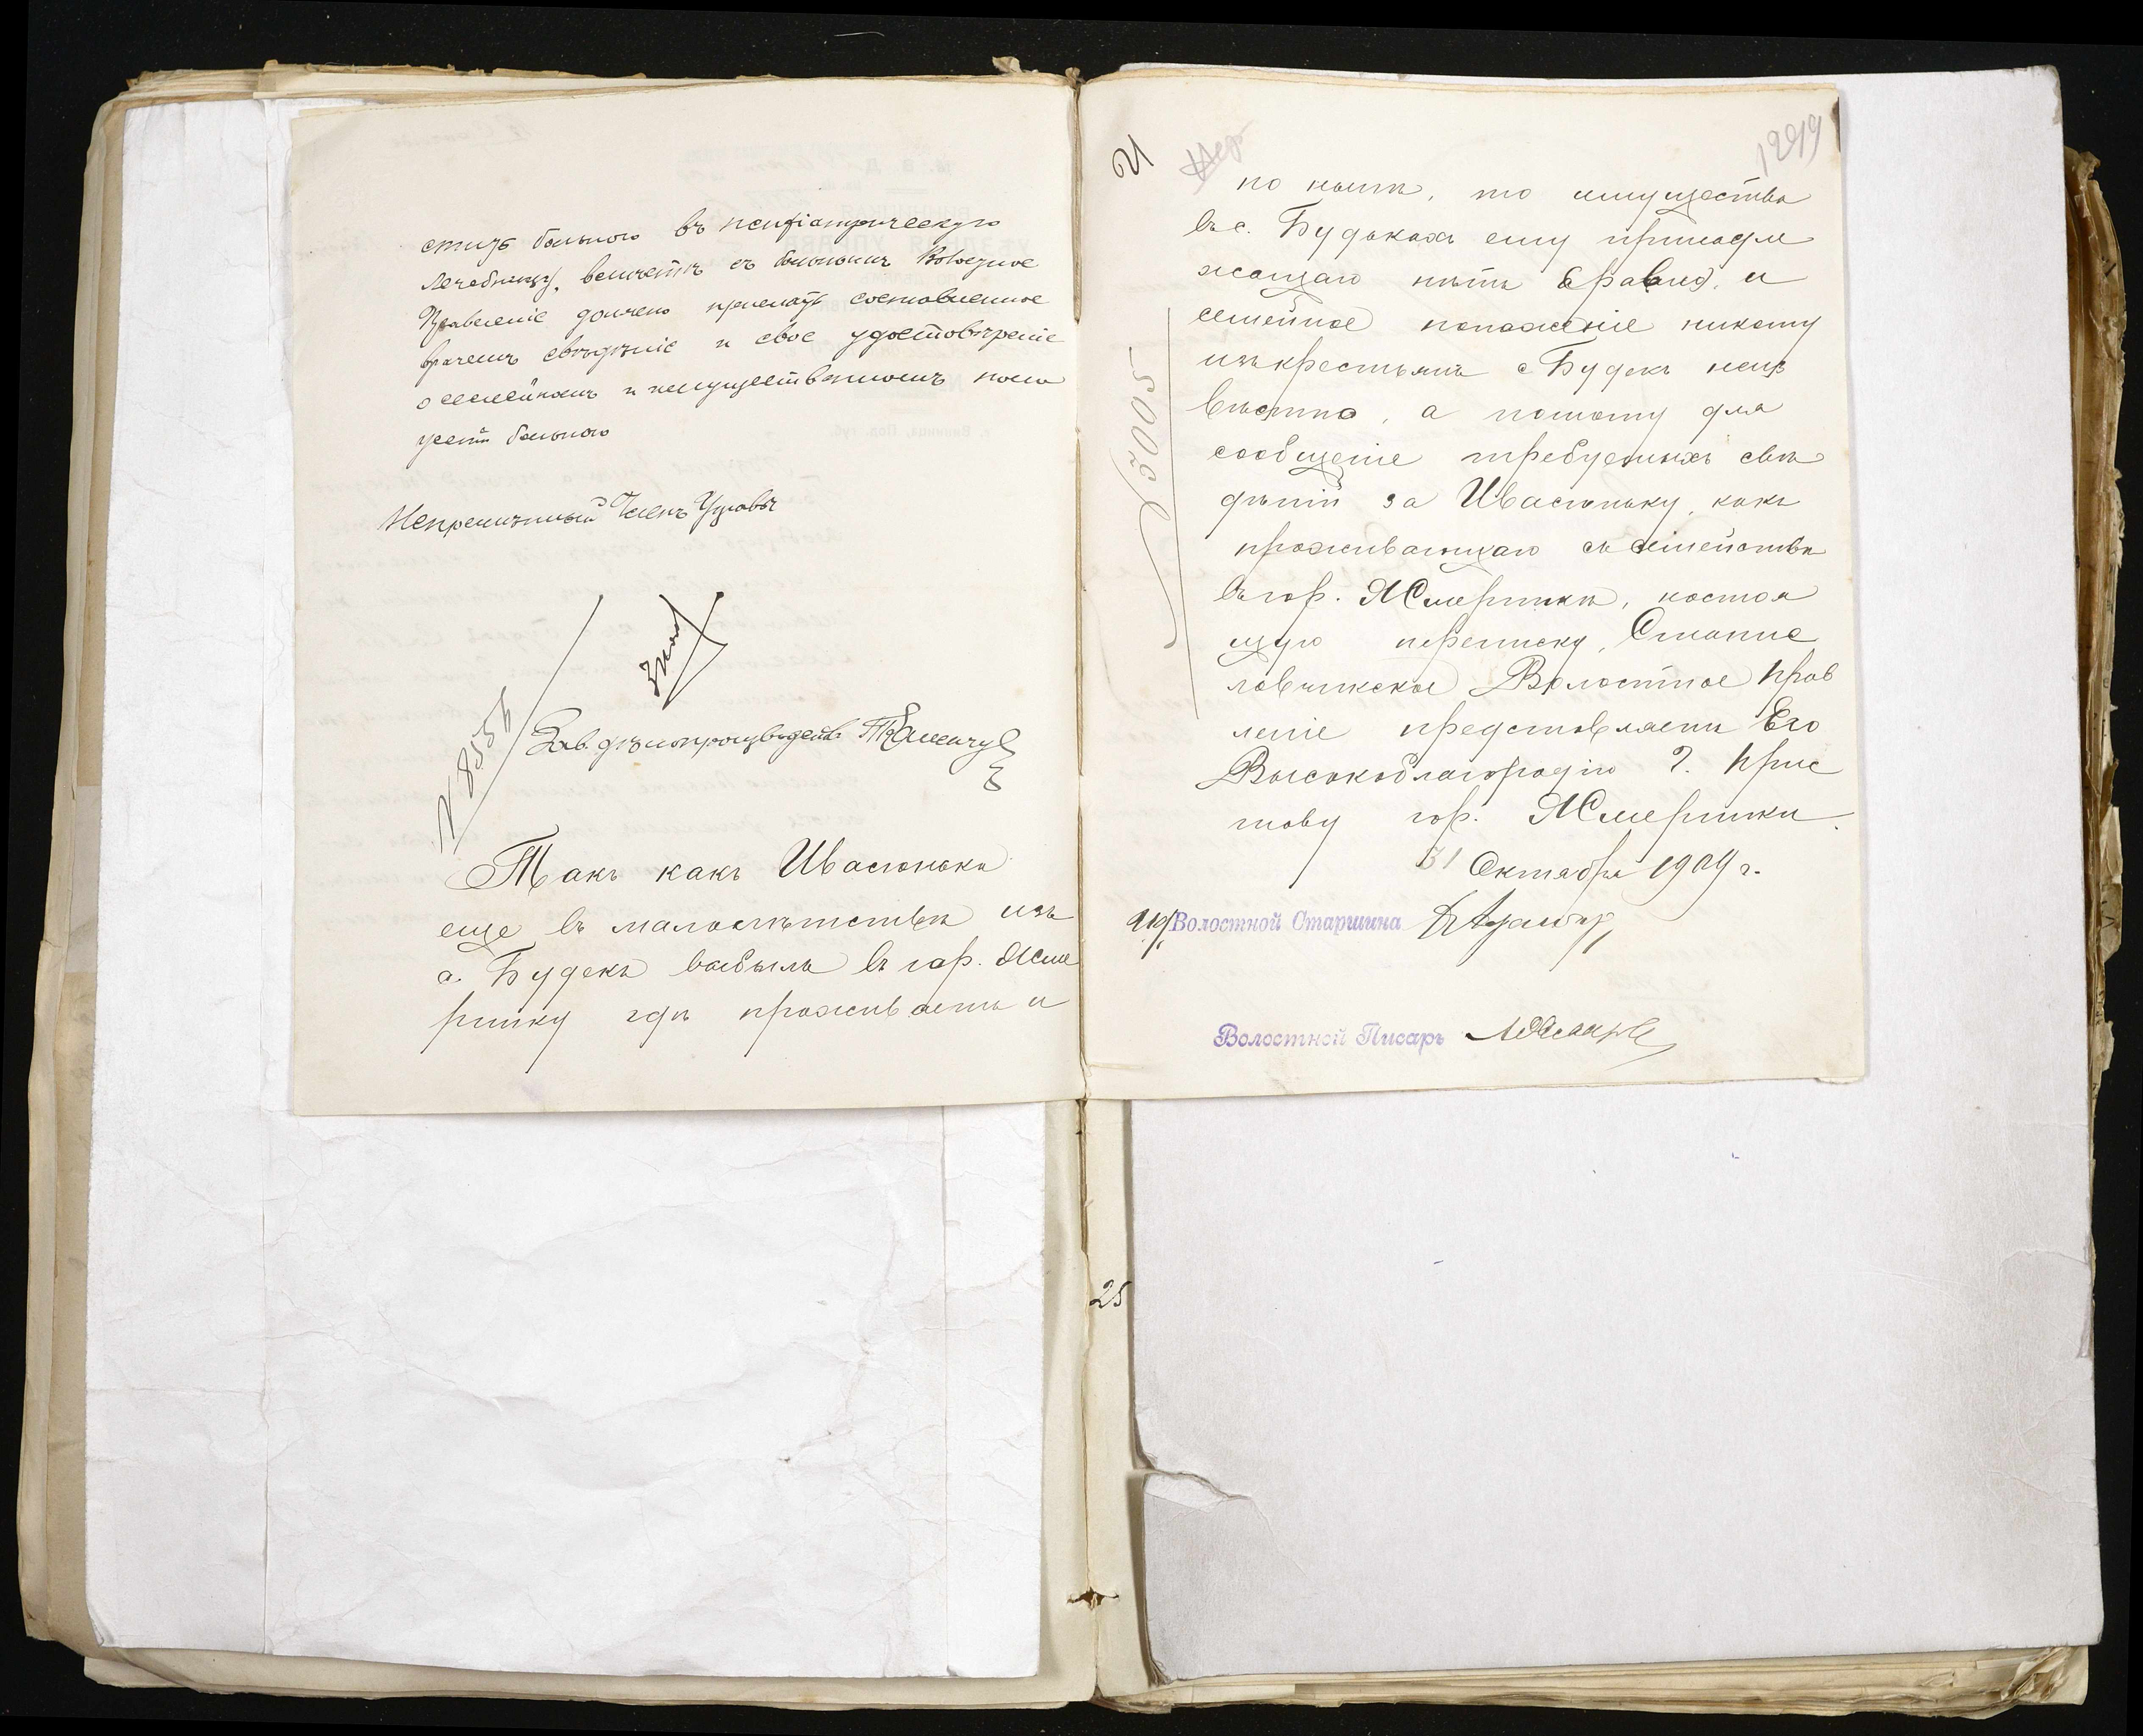 стить больного въ психіатрическую
лечебницу, вмѣстѣ съ больнымъ Волостное
Правленіе должно прислать составленное
врачемъ свѣдѣніе и свое удостовѣреніе
о семейномъ и имущественномъ поло
женіи больного
Непремѣнный Членъ Управы
Зав. дѣлопроизводств.
N 8556
Такъ какъ Ивасюнька
еще въ малолѣтствѣ изъ
с. Будекъ выбылъ въ гор. Жме
ринку гдѣ проживаетъ и
21
1299
по нынѣ, то имущества
въ с. Будькахъ ему принадле
жащаго нѣтъ и
семейное положеніе никому
изъ крестьянъ с Будекъ неиз
вѣстно, а потому для
сообщеніе требуемыхъ свѣ
дѣній за Ивасюньку, какъ
проживающаго съ семействѣ
въ гор. Жмеринкѣ, настоя
щую переписку, Станис
лавчикское Волостное Прав
леніе представляетъ Его
Высокоблагородію Г. Прис
таву гор. Жмеринки.
31 Октября 1909 г.
5005
Волостной Старшина
Волостной Писарь
25